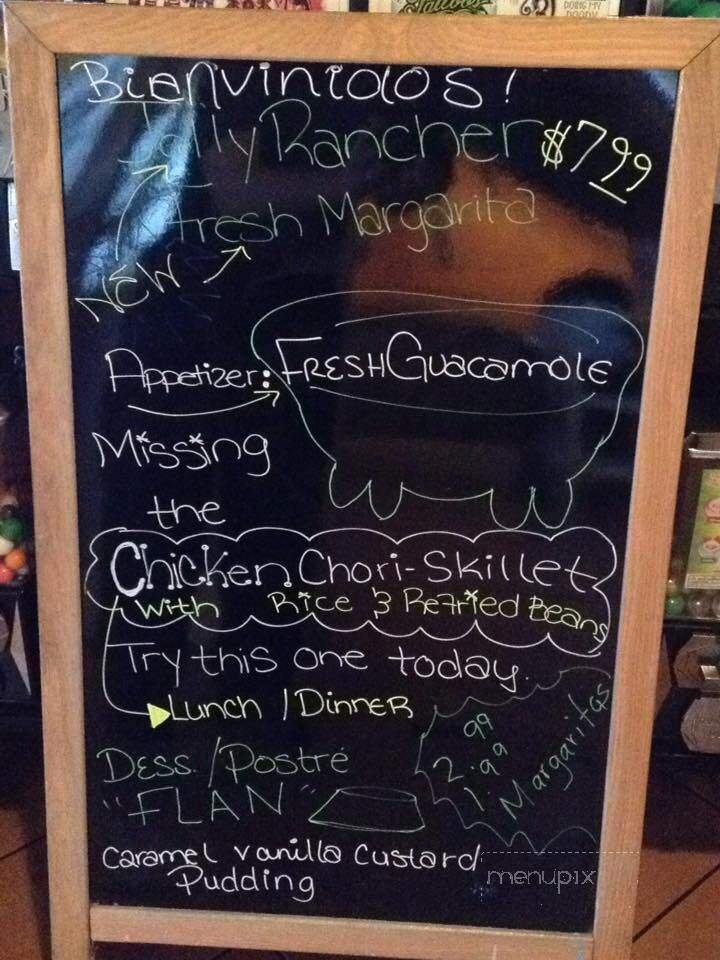 Bienvinidos!
Jolly Rancher $7.99
Fresh Margarita
NEW
Appetizer: Fresh Guacamole
Missing
the
Chicken Chori-Skillet
with Rice & Refried Beans
Try this one today.
Lunch / Dinner
Dess. / Postré
"FLAN"
99
2.99
1.
Margaritas
Caramel vanilla Custard
Pudding
menupix